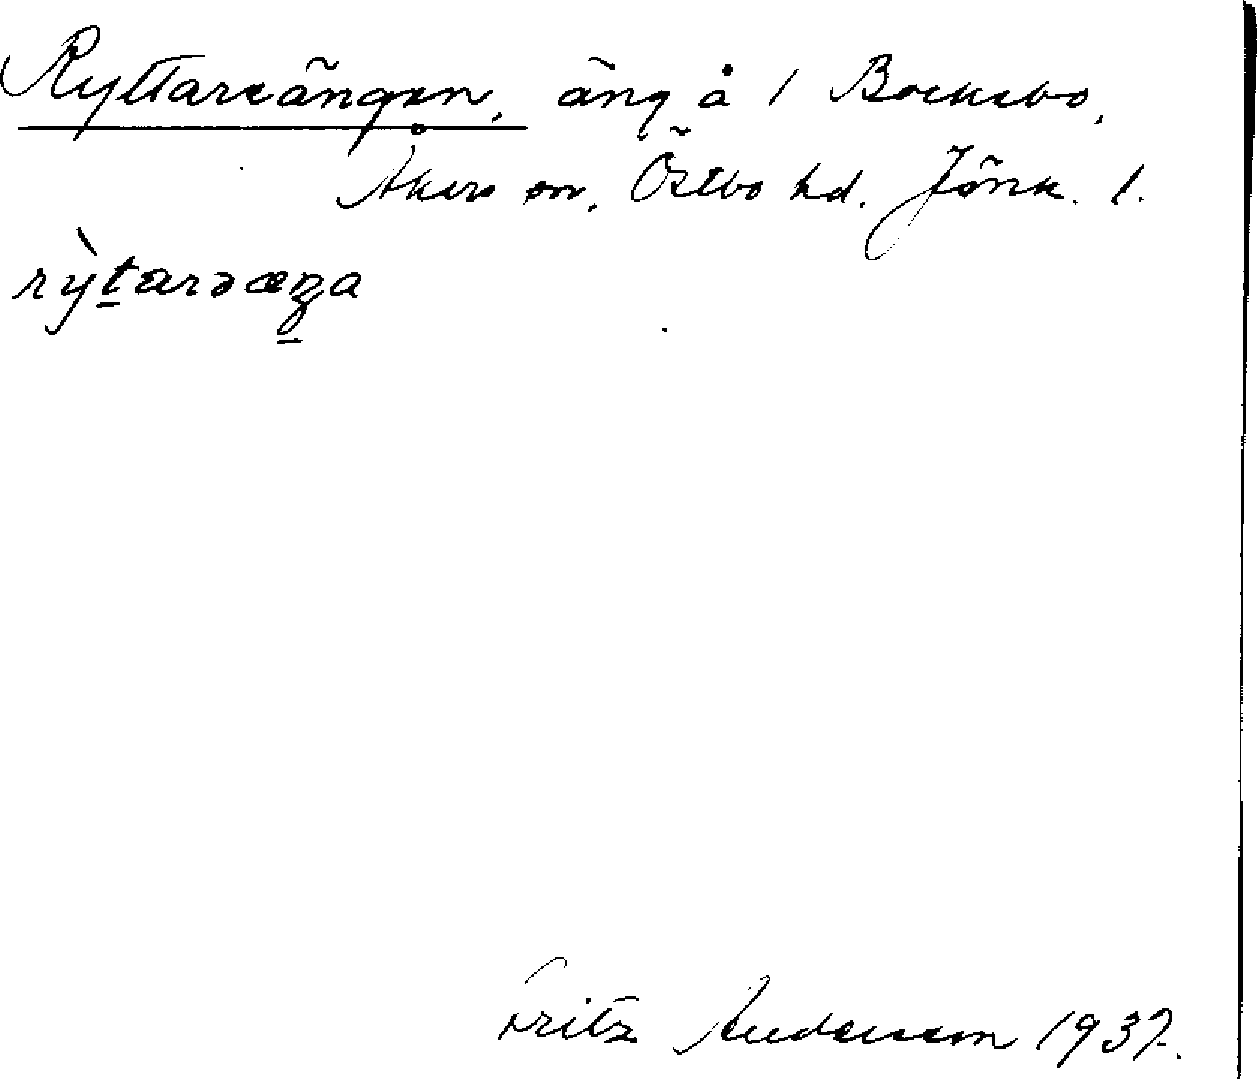 Ryttareängen, äng å 1 Bocksbo,
Åkers sn, Östbo hd. Jönk. l.
rỳtarəæŋa
Fritz Andersson 1937.